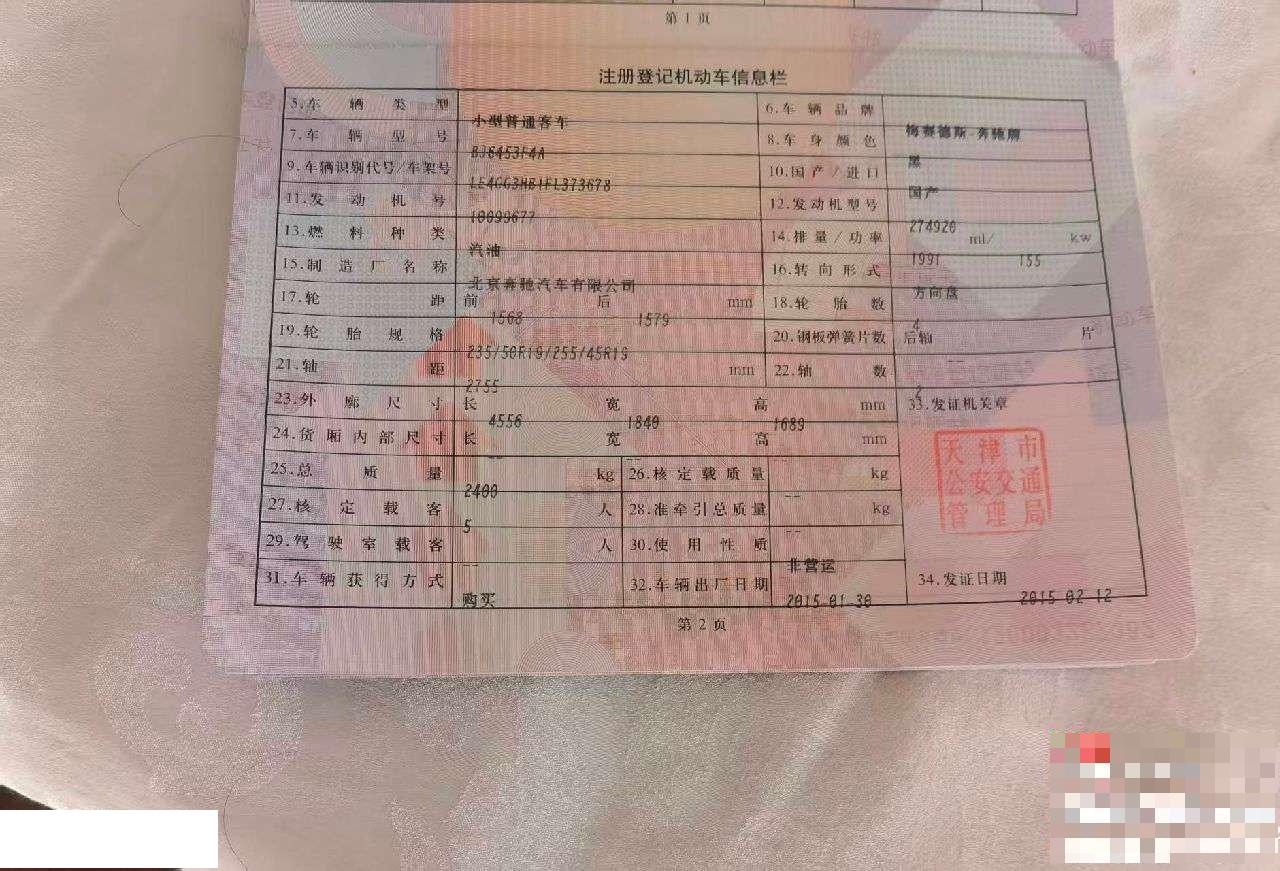 第 1 页
注册登记机动车信息栏
5.车辆类型 小型普通客车 6.车辆品牌 梅赛德斯-奔驰牌
7.车辆型号 BJ6453F4A 8.车身颜色 黑
9.车辆识别代号/车架号 LE4GG3HB1FL373678 10.国产/进口 国产
11.发动机号 10099677 12.发动机型号 274920
13.燃料种类 汽油 14.排量/功率 1991 ml/ 155 kw
15.制造厂名称 北京奔驰汽车有限公司 16.转向形式 方向盘
17.轮距 前 1568 后 1579 mm 18.轮胎数 4
19.轮胎规格 235/50R19/255/45R19 20.钢板弹簧片数 后轴 -- 片
21.轴距 2755 mm 22.轴数 2
23.外廓尺寸 长 4556 宽 1840 高 1689 mm 33.发证机关章
24.货厢内部尺寸 长 -- 宽 -- 高 -- mm
天津市
公安交通
管理局
25.总质量 2400 kg 26.核定载质量 -- kg
27.核定载客 5 人 28.准牵引总质量 -- kg
29.驾驶室载客 -- 人 30.使用性质 非营运
31.车辆获得方式 购买 32.车辆出厂日期 2015-01-30 34.发证日期 2015-02-12
第 2 页